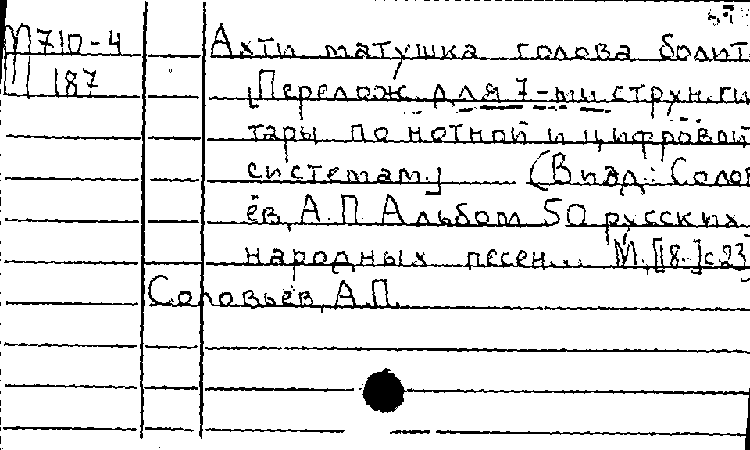 М 710-4
П 187
Ахти матушка голова болит
[Перелож. для 7-ми струн. ги
тары по нотной и цифровой
системам] (В изд.: Солов
ёв, А.П. Альбом 50 русских
народных песен... М., [18-] с 23
Соловьёв, А.П.